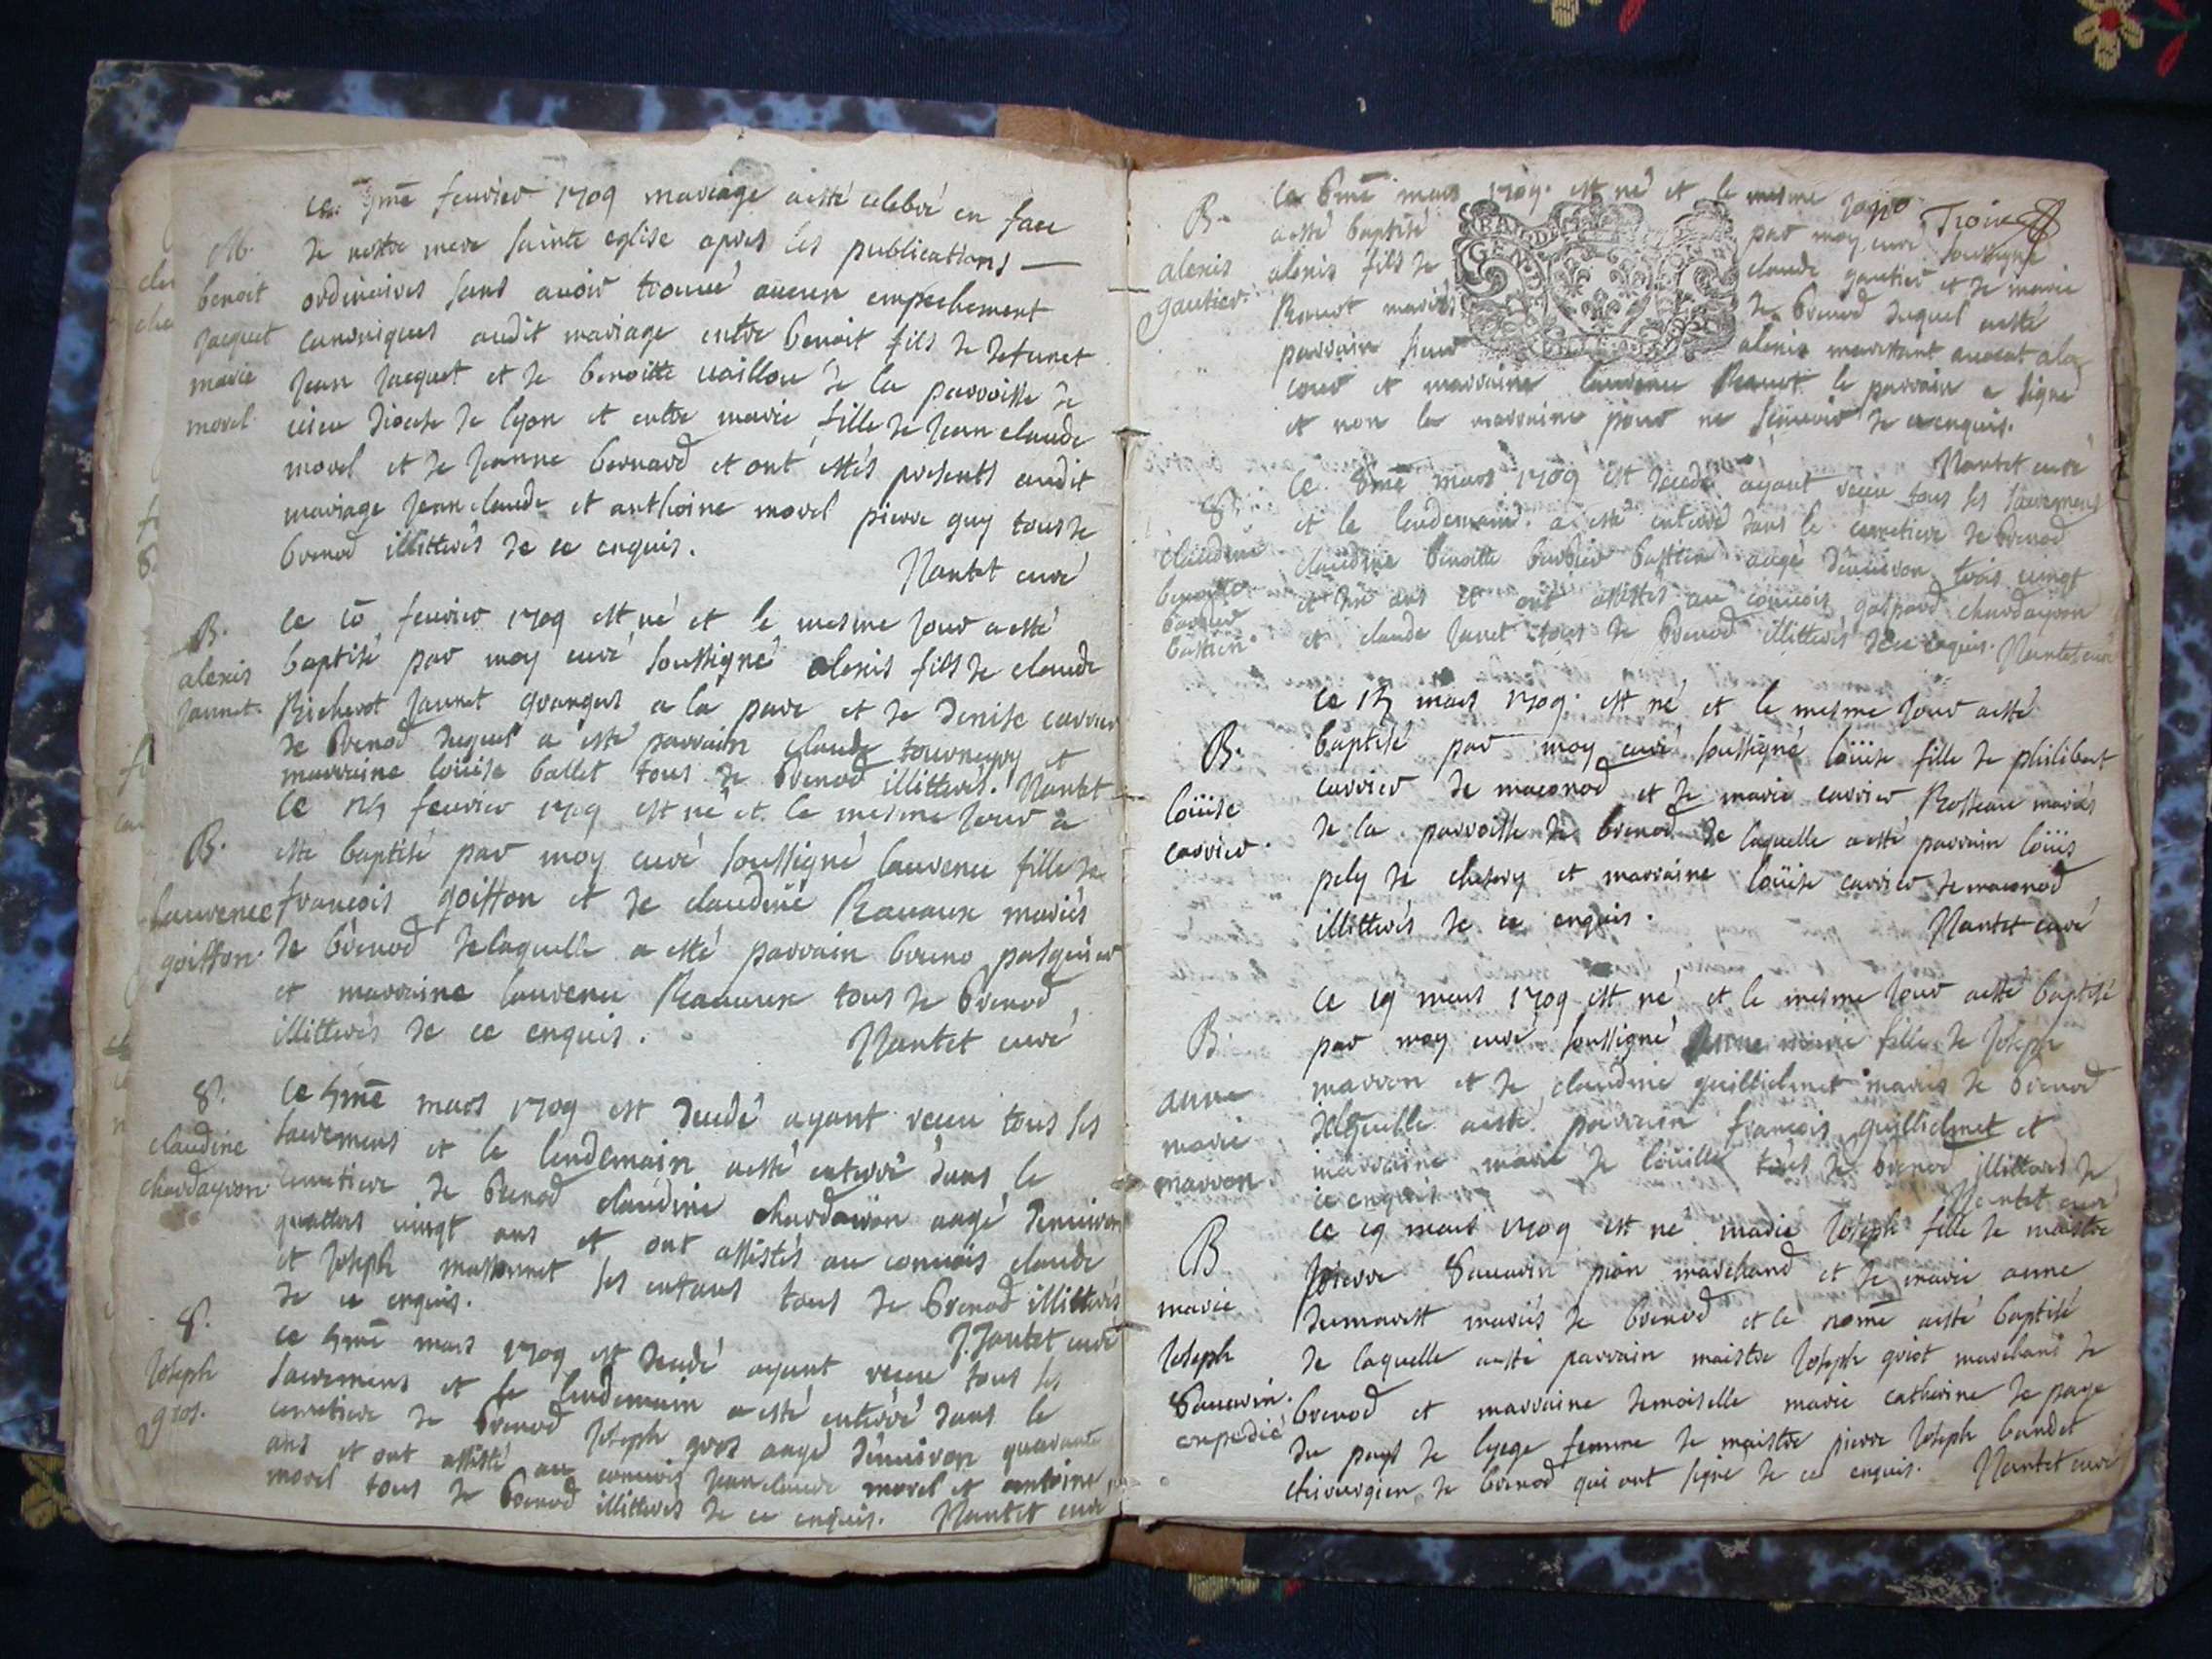 M.
benoit
jacquet
marie
morel
ce 9me feuvier 1709 mariage a esté celebré en face
de nostre mere sainte eglise apres les publications
ordinaires sans avoir trouvé aucun empechement
canoniques audit mariage entre benoit fils de defunct
jean jacquet et de benoitte de la parroisse de
diocese de lyon et entre marie fille de jean claude
morel et de jeanne bernard et ont estés presents audit
mariage jean claude et anthoine morel pierre guy tous de
brenod illitterés de ce enquis.
Nantet curé
B.
alexis
jannet.
ce feuvrier 1709 est né et le mesme jour a esté
baptisé par moy curé soussigné alexis fils de claude
Richerot jannet granger a la et de denise carrier
de brenod duquel a esté parrain claude et
marraine loüise ballet tous de brenod illitterés. Nantet
B.
laurence
goiffon.
ce feuvrier 1709 est né et le mesme jour a
esté baptisé par moy curé soussigné laurence fille de
françois goiffon et de claudine Ravaux mariés
de brenod de laquelle a esté parrain bruno pasquier
et marraine laurence Ravaux tous de brenod
illitterés de ce enquis.
Nantet curé
S.
claudine
chardayron
ce me mars 1709 est decedé ayant receu tous ses
sacremens et le lendemain a esté enterré dans le
cemetiere de brenod claudine aagé denuiron
quattres vingt ans et ont assistés au conuois claude
et joseph massonnet ses enfans tous de brenod illitterés
de ce enquis.
Nantet curé
S.
joseph
gros.
ce me mars 1709 est decedé ayant receu tous ses
sacremens et le lendemain a esté enterré dans le
cemetiere de brenod joseph gros aagé denuiron quarante
ans et ont assisté au conuois jean claude morel et antoine
morel tous de brenod illitterés de ce enquis. Nantet curé
B.
alexis
gautier.
ce 6me mars 1709. est né et le mesme jour
a esté baptisé par moy curé soussigné
alexis fils de claude gautier et de marie
mariés de brenod duquel a esté
parrain sieur alexis marchant avocat a la
cour et marraine laurence le parrain a signé
et non la marraine pour ne scauoir de ce enquis.
Nantet curé
GEN
S.
claudine
benoitte
barbier
bastien
ce 8me mars 1709 est decedé ayant receu tous ses sacremens
et le lendemain a esté enterré dans le cemetiere de brenod
claudine benoitte barbier bastien aagé denuiron trois vingt
et dix ans et ont assistés au conuois gaspard chardayron
et claude janet tous de brenod illitterés de ce enquis. Nantet curé
B.
loüise
carrier.
ce mars 1709. est né et le mesme jour a esté
baptisé par moy curé soussigné loüise fille de philibert
carrier de maconod et de marie carrier Rosseau mariés
de la parroisse de brenod de laquelle a esté parrain loüis
pely de chesery et marraine loüise carrier de maconod
illitterés de ce enquis.
Nantet curé
B.
anne
marie
marron.
ce 19 mars 1709 est né et le mesme jour a esté baptisé
par moy curé soussigné anne marie fille de joseph
marron et de claudine guillielmet mariés de brenod
de laquelle a esté parrain françois guillielmet et
marraine marie de tous de brenod illitterés de
ce enquis
Nantet curé
B
marie
joseph
Sauarin.
expedié
ce 19 mars 1709 est né marie joseph fille de maistre
pierre Sauarin pion marchand et de marie anne
dumarest mariés de brenod et le 20me a esté baptisé
de laquelle a esté parrain maistre joseph griot marchand de
brenod et marraine demoiselle marie catherine de page
du pays de lyege femme de maistre pierre joseph baudet
chirurgien de brenod qui ont signé de ce enquis. Nantet curé